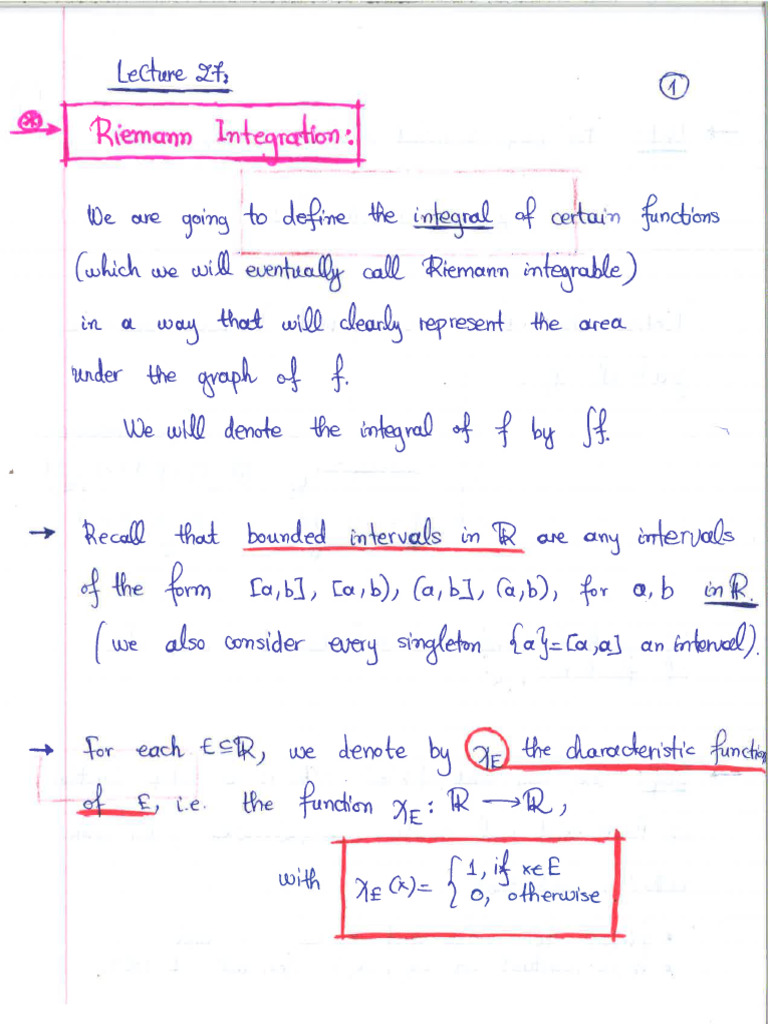 Lecture 27:
1
* Riemann Integration:
We are going to define the integral of certain functions
(which we will eventually call Riemann integrable)
in a way that will clearly represent the area
under the graph of f.
We will denote the integral of f by ∫f.
→ Recall that bounded intervals in ℝ are any intervals
of the form [a,b], [a,b), (a,b], (a,b), for a,b in ℝ.
(we also consider every singleton {a}=[a,a] an interval).
→ For each E⊆ℝ, we denote by χ_E the characteristic function
of E, i.e. the function χ_E: ℝ → ℝ,
with χ_E(x)= { 1, if x∈E
0, otherwise